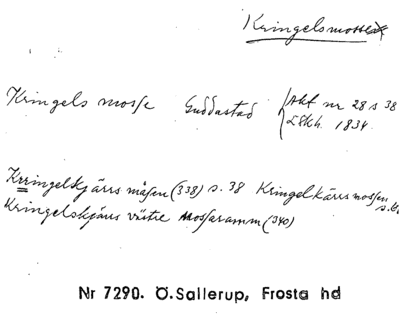 Kringelsmosse
Kringels mosse Guddastad Akt nr 28 s 38
LSkh. 1834.
Krringelskjärrs måsen (338) s. 38 Kringelkärrs mossen
Kringelskjärrs västre Mossaramm (340)
Nr 7290. Ö. Sallerup, Frosta hd